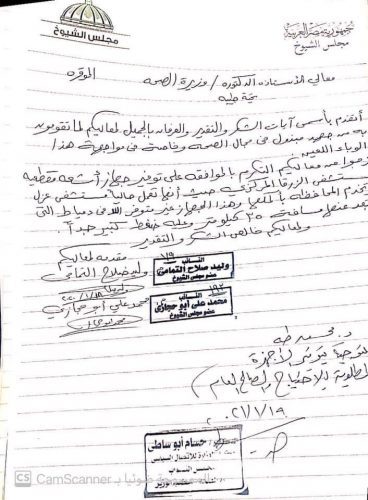 جمهورية مصر العربية
مجلس الشيوخ
مجلس الشيوخ
معالي الأستاذة الدكتورة / وزيرة الصحة الموقرة
تحية طيبة
أتقدم بأسمى آيات الشكر والتقدير والعرفان بالجميل لمعاليكم لما تقومون
به من جهد مبذول في مجال الصحة وخاصة في مواجهة هذا
الوباء اللعين
نرجوا من معاليكم التكرم بالموافقة على توفير جهاز أشعة مقطعية
بمستشفى الزرقا المركزي حيث أنها تعمل حالياً مستشفى عزل
تخدم المحافظة بأكملها وهذا الجهاز غير متوفر إلا في دمياط التي
تبعد عنها مسافة ٣٥ كيلومتر وعليه ضغط كبير جداً
ولمعاليكم خالص الشكر والتقدير
مقدمه لمعاليكم
النائب
وليد صلاح التمامى
عضو مجلس الشيوخ
وليد صلاح التمامي
النائب
محمد على أبو حجازى
عضو مجلس الشيوخ
محمد علي أبو حجازي
د. محمد طه
توفير الأجهزة
المطلوبة للاحتياج والصالح العام
حسام أبو ساطى
للاتصال السياسى
CS CamScanner